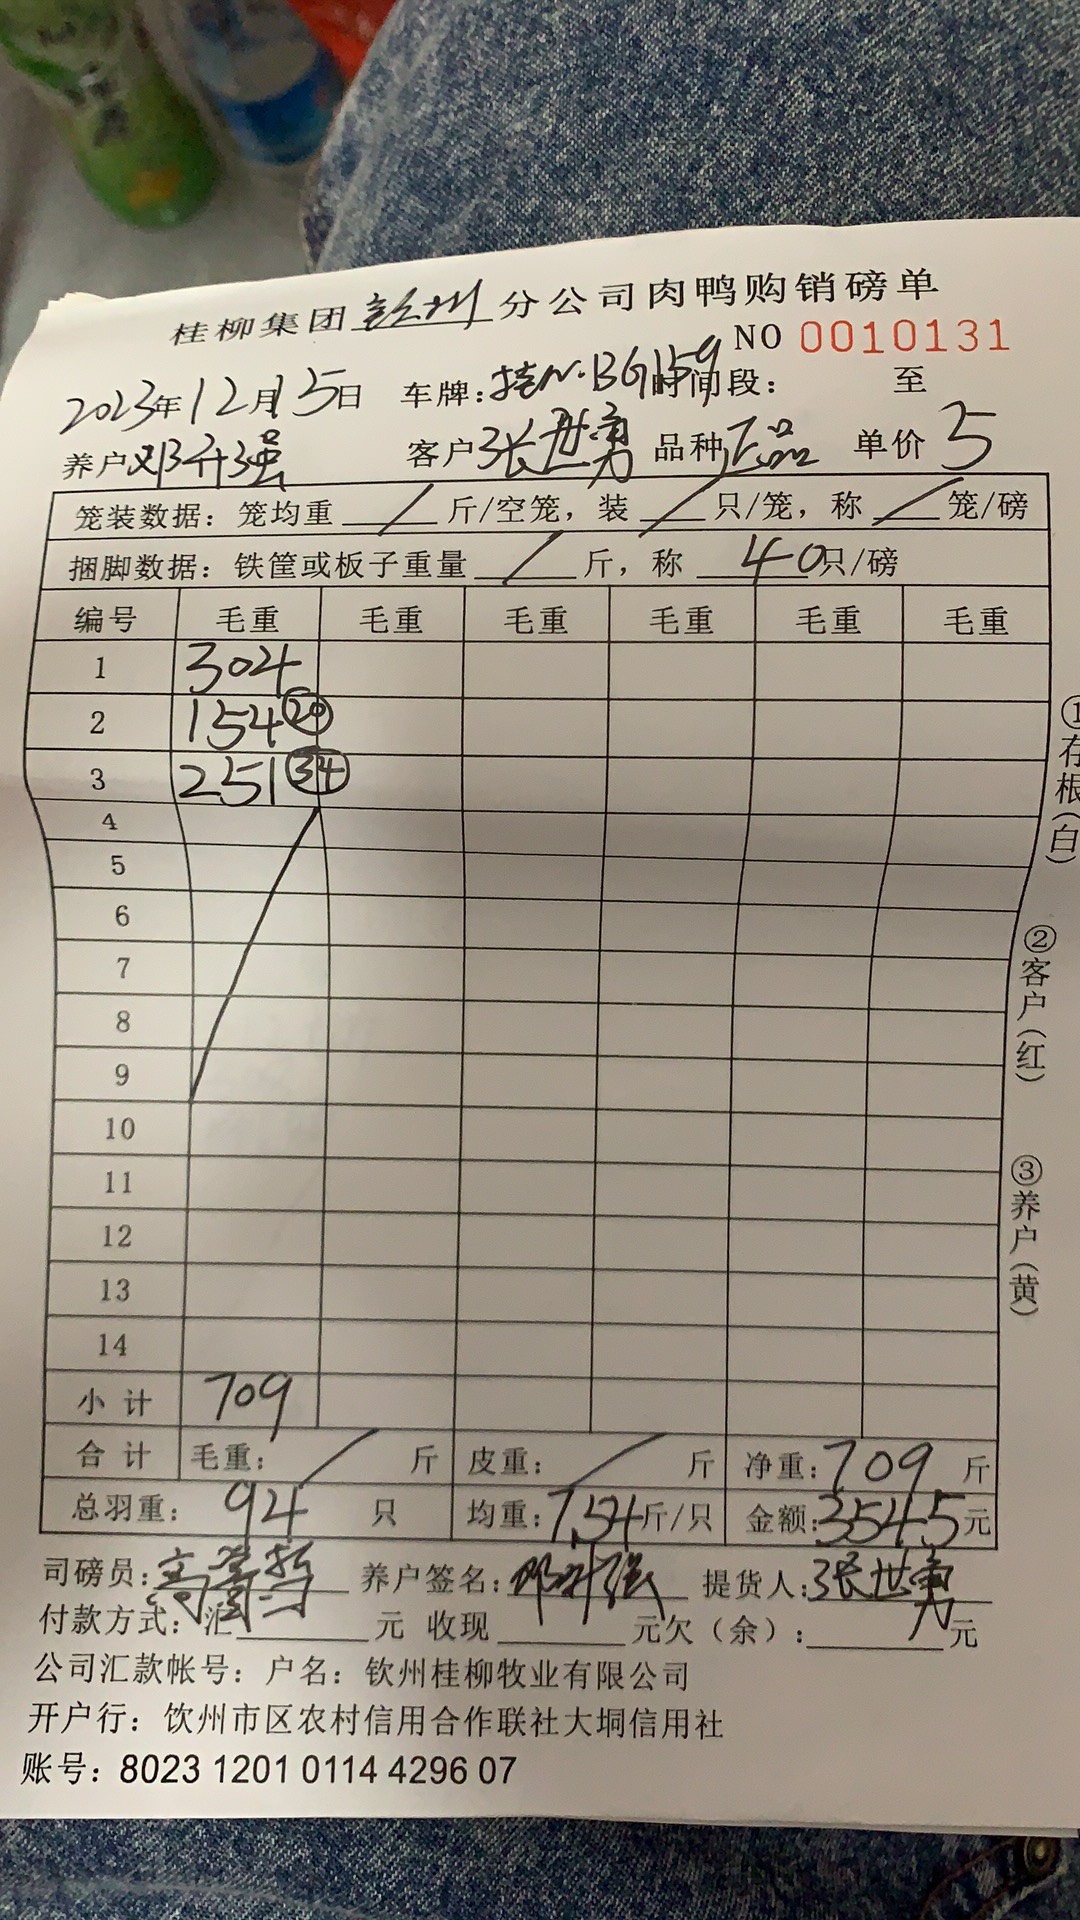 桂柳集团彭州分公司肉鸭购销磅单
NO 0010131
2023年12月15日 车牌:桂N·BG159 时间段: 至
养户邓升强 客户张世勇 品种正品 单价5
笼装数据:笼均重 / 斤/空笼,装 / 只/笼,称 / 笼/磅
捆脚数据:铁筐或板子重量 / 斤,称 40只/磅
编号 毛重 毛重 毛重 毛重 毛重 毛重
1 304
2 154 ⑳
3 251 ㉞
4
5
6
7
8
9
10
11
12
13
14
小计 709
合计 毛重: / 斤 皮重: / 斤 净重:709 斤
总羽重: 94 只 均重:7.54斤/只 金额:3545元
司磅员: 养户签名:邓升强 提货人:张世勇
付款方式:汇 元 收现 元欠(余): 元
公司汇款帐号:户名:钦州桂柳牧业有限公司
开户行:饮州市区农村信用合作联社大垌信用社
账号:8023 1201 0114 4296 07
①存根(白)
②客户(红)
③养户(黄)